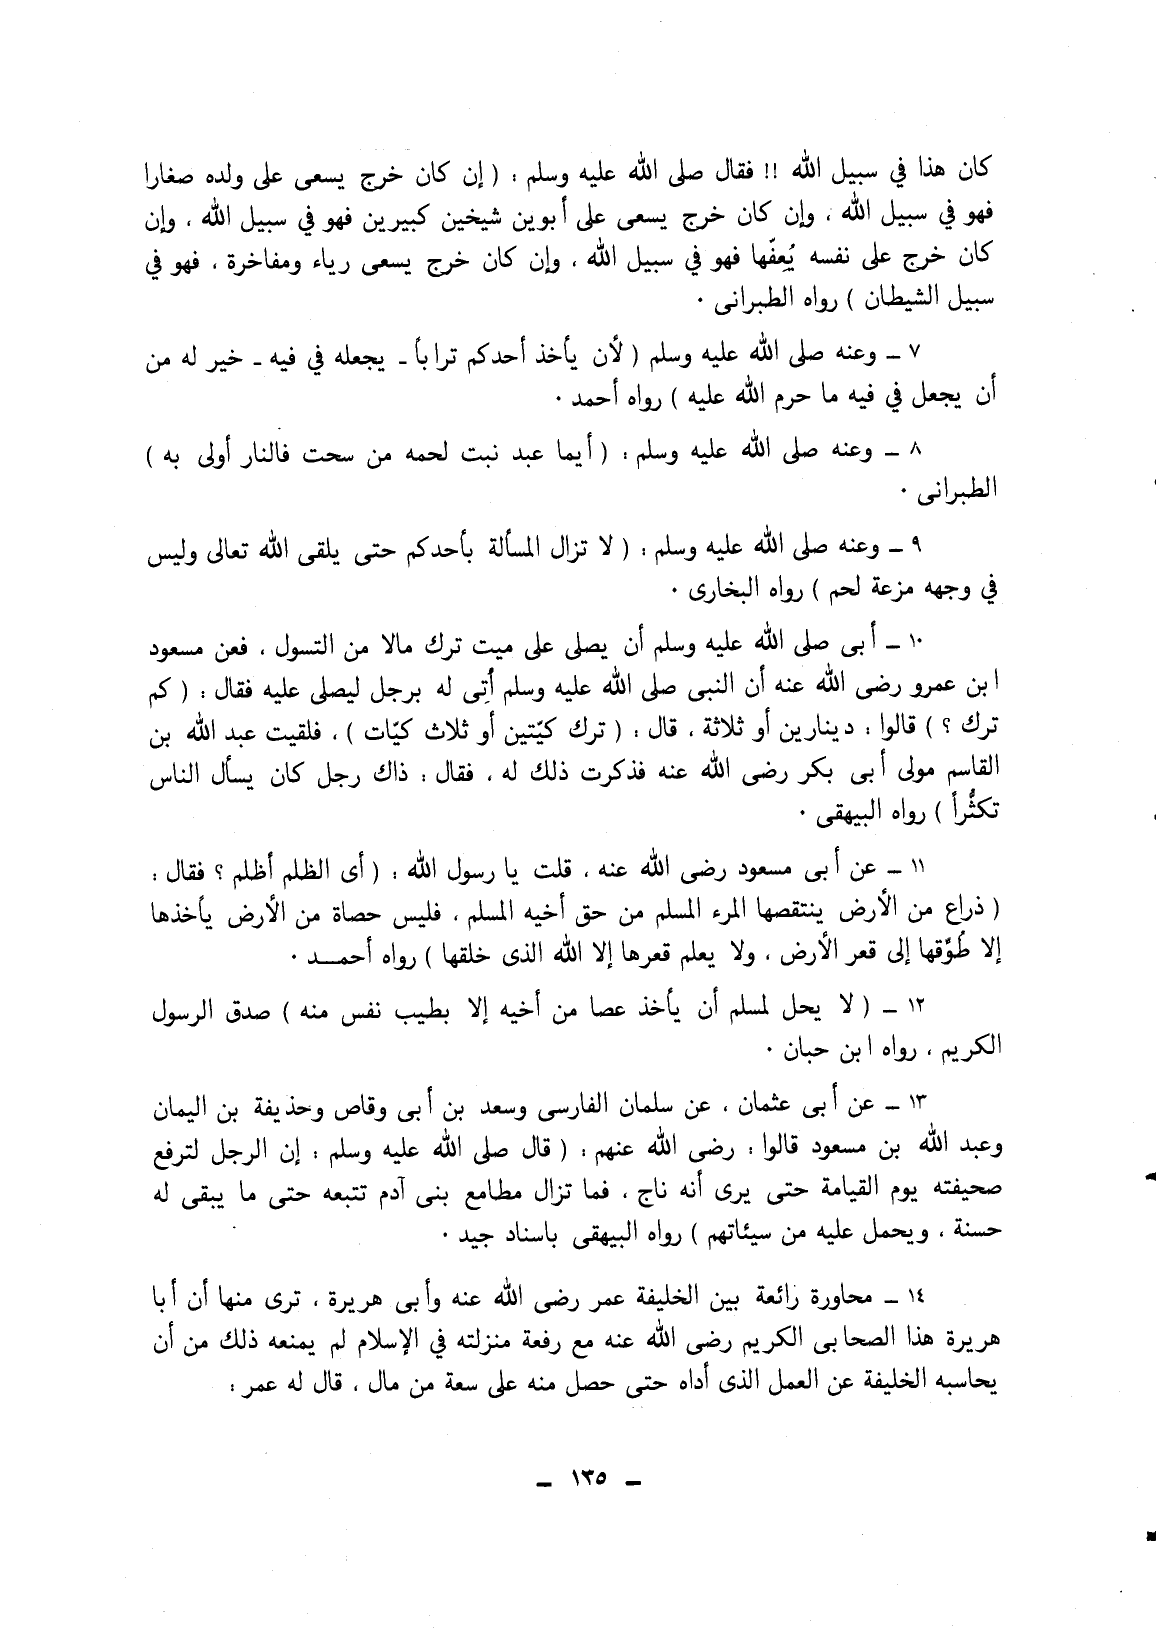 كان هذا في سبيل الله !! فقال صلى الله عليه وسلم : ( إن كان خرج يسعى على ولده صغارا
فهو في سبيل الله ، وإن كان خرج يسعى على أبوين شيخين كبيرين فهو في سبيل الله ، وإن
كان خرج على نفسه يُعِفّها فهو في سبيل الله ، وإن كان خرج يسعى رياء ومفاخرة ، فهو في
سبيل الشيطان ) رواه الطبرانى ٠
٧ ـ وعنه صلى الله عليه وسلم ( لأن يأخذ أحدكم تراباً ـ يجعله في فيه ـ خير له من
أن يجعل في فيه ما حرم الله عليه ) رواه أحمد ٠
٨ ـ وعنه صلى الله عليه وسلم : ( أيما عبد نبت لحمه من سحت فالنار أولى به )
الطبرانى ٠
٩ ـ وعنه صلى الله عليه وسلم : ( لا تزال المسألة بأحدكم حتى يلقى الله تعالى وليس
في وجهه مزعة لحم ) رواه البخارى ٠
١٠ ـ أبى صلى الله عليه وسلم أن يصلى على ميت ترك مالا من التسول ، فعن مسعود
ابن عمرو رضى الله عنه أن النبى صلى الله عليه وسلم أُتِى له برجل ليصلى عليه فقال : ( كم
ترك ؟ ) قالوا : دينارين أو ثلاثة ، قال : ( ترك كيّتين أو ثلاث كيّات ) ، فلقيت عبد الله بن
القاسم مولى أبى بكر رضى الله عنه فذكرت ذلك له ، فقال : ذاك رجل كان يسأل الناس
تكثُّراً ) رواه البيهقى ٠
١١ ـ عن أبى مسعود رضى الله عنه ، قلت يا رسول الله : ( أى الظلم أظلم ؟ فقال :
( ذراع من الأرض ينتقصها المرء المسلم من حق أخيه المسلم ، فليس حصاة من الأرض يأخذها
إلا طُوِّقها إلى قعر الأرض ، ولا يعلم قعرها إلا الله الذى خلقها ) رواه أحمــد ٠
١٢ ـ ( لا يحل لمسلم أن يأخذ عصا من أخيه إلا بطيب نفس منه ) صدق الرسول
الكريم ، رواه ابن حبان ٠
١٣ ـ عن أبى عثمان ، عن سلمان الفارسى وسعد بن أبى وقاص وحذيفة بن اليمان
وعبد الله بن مسعود قالوا : رضى الله عنهم : ( قال صلى الله عليه وسلم : إن الرجل لترفع
صحيفته يوم القيامة حتى يرى أنه ناج ، فما تزال مطامع بنى آدم تتبعه حتى ما يبقى له
حسنة ، ويحمل عليه من سيئاتهم ) رواه البيهقى باسناد جيد ٠
١٤ ـ محاورة رائعة بين الخليفة عمر رضى الله عنه وأبى هريرة ، ترى منها أن أبا
هريرة هذا الصحابى الكريم رضى الله عنه مع رفعة منزلته في الإسلام لم يمنعه ذلك من أن
يحاسبه الخليفة عن العمل الذى أداه حتى حصل منه على سعة من مال ، قال له عمر :
ـ ١٣٥ ـ